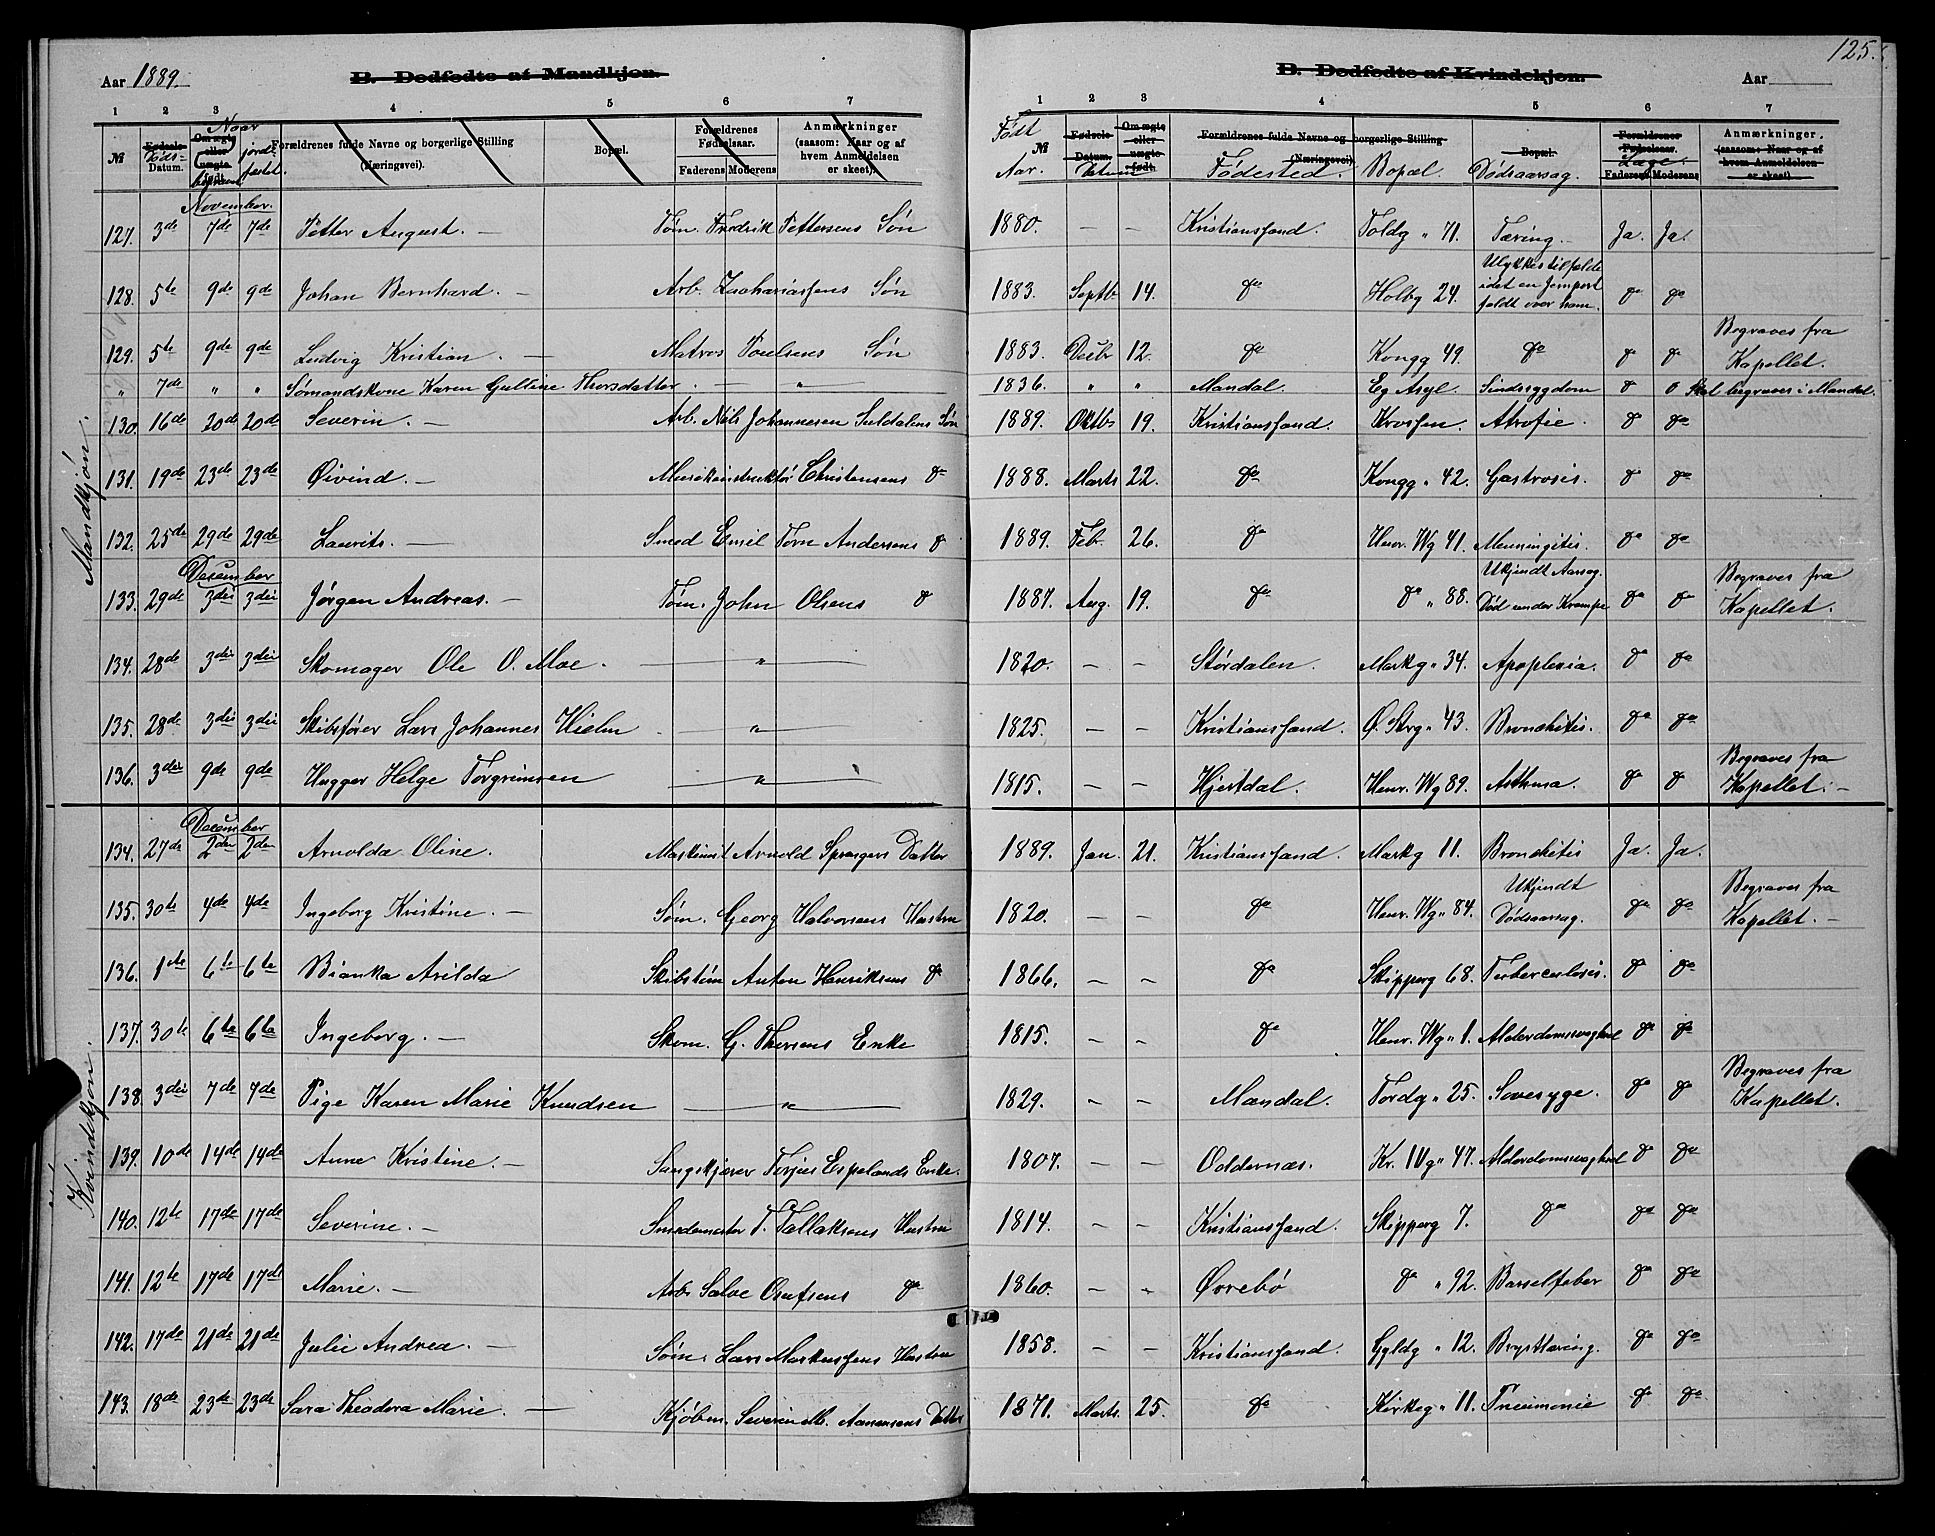 125.
Aar 1889. B. Dødfødte af Mandkjøn. B. Dødfødte af Kvindekjøn. Aar
1 2 3 4 5 6 7 1 2 3 4 5 6 7
№ Fødsels- Datum. Døds- Om ægte eller uægte født. Naar begravet jordfæstet. Forældrenes fulde Navne og borgerlige Stilling (Næringsvei). Bopæl. Forældrenes Fødselsaar. Faderens Moderens Anmærkninger (saasom: Naar og af hvem Anmeldelsen er skeet). Født Aar. № Fødsels- Datum. Datum Om ægte eller uægte født. Forældrenes fulde Navne og borgerlige Stilling (Næringsvei). Fødested. Bopæl. Bopæl. Dødsaarsag. Forældrenes Fødselsaar. Læge. Faderens Moderens Anmærkninger. (saasom: Naar og af hvem Anmeldelsen er skeet).
Mandkjøn.
November.
127. 3de 7de 7de Petter August. — Tøm. Fredrik Pettersens Søn 1880. — — Kristianssand. Toldg " 71. Tæring. Ja. Ja.
128. 5te 9de 9de Johan Bernhard. — Arb. Zachariassens Søn 1883. Septb 14. do Holbg 24. Ulykkestilfælde idet en Jernport faldt over ham. do do
129. 5te 9de 9de Ludvig Kristian. — Matros Poulsens Søn 1883. Decbr 12. do Kongg 49. do do do Begraves fra Kapellet.
" 7de " " Sømandskone Karen Gulline Thorsdatter. — " — 1836. " " Mandal. Eg Asyl. Sindssygdom do do Skal begraves i Mandal.
130. 16de 20de 20de Severin. — Arb. Nils Johannesen Suldalens Søn 1889. Oktb 19. Kristianssand. Krossen. Atrofie. do do
131. 19de 23de 23de Øivind. — Musikinstruktør Christensens do 1888. Marts 22. do Kongg " 42. Gastrosis. do do
132. 25de 29de 29de Laurits. — Smed Emil Tom Andersens do 1889. Feb. 26. do Henr. Wg 41. Menningitis. do do
December
133. 29de 3die 3die Jørgen Andreas. — Tøm. John Olsens do 1887. Aug. 19. do do " 88. Ukjendt Aarsag. Død under Krampe do do Begraves fra Kapellet.
134. 28de 3die 3die Skomager Ole O. Moe. — " — 1820. — — Størdalen. Markg " 34. Apoplexia. do do
135. 28de 3die 3die Skibsfører Lars Johannes Hielm — " — 1825. — — Kristianssand. Ø. Strg " 43. Bronchitis. do do
136. 3die 9de 9de Hugger Helge Torgrimsen — " — 1815. — — Hjertdal. Henr. Wg 89. Asthma. do do Begraves fra Kapellet. —
Kvindekjøn.
December
134. 27de 2den 2den Arnolda Oline. Maskinist Arnold Sprangers Datter 1889. Jan. 21. Kristianssand. Markg 11. Bronchitis Ja. Ja.
135. 30te 4de 4de Ingeborg Kristine. — Søm. Georg Halvorsens Hustru 1820. — — do Henr. Wg " 84. Ukjendt Dødsaarsag. do do Begraves fra Kapellet. —
136. 1ste 6te 6te Bianka Arilda Skibstøm. Anton Henriksens do 1866. — — do Skipperg 68. Tuberculosis. do do
137. 30te 6te 6te Ingeborg. — Skom. G. Thorsens Enke 1815. — — do Henr. Wg " 1. Alderdomssvaghed do do
138. 3die 7de 7de Pige Karen Marie Knudsen — " — 1829. — — Mandal. Tordg " 25. Sovesyge. do do Begraves fra Kapellet.
139. 10de 14de 14de Anne Kristine. — Sangskjører Terjus Espelands Enke. 1807. — — Oddernæs. Kr. IVg " 47. Alderdomssvaghed do do
140. 12te 17de 17de Severine. — Smedemester T. Tallaksens Hustru 1814. — — Kristianssand. Skipperg 7. do do do
141. 12te 17de 17de Marie. — Arb. Salve Olufsens do 1860. — — Øvrebø do " 92. Barselfeber do do
142. 17de 21de 21de Julie Andrea. — Søm. Lars Markussens Hustru 1858. — — Kristianssand. Gyldg " 12. Brysttæring. do do
143. 18de 23de 23de Sara Theodora Marie. — Kjøbm. Severin M. Aanensens Datter 1871. Marts. 25. do Kirkeg " 11. Pneumonie do do